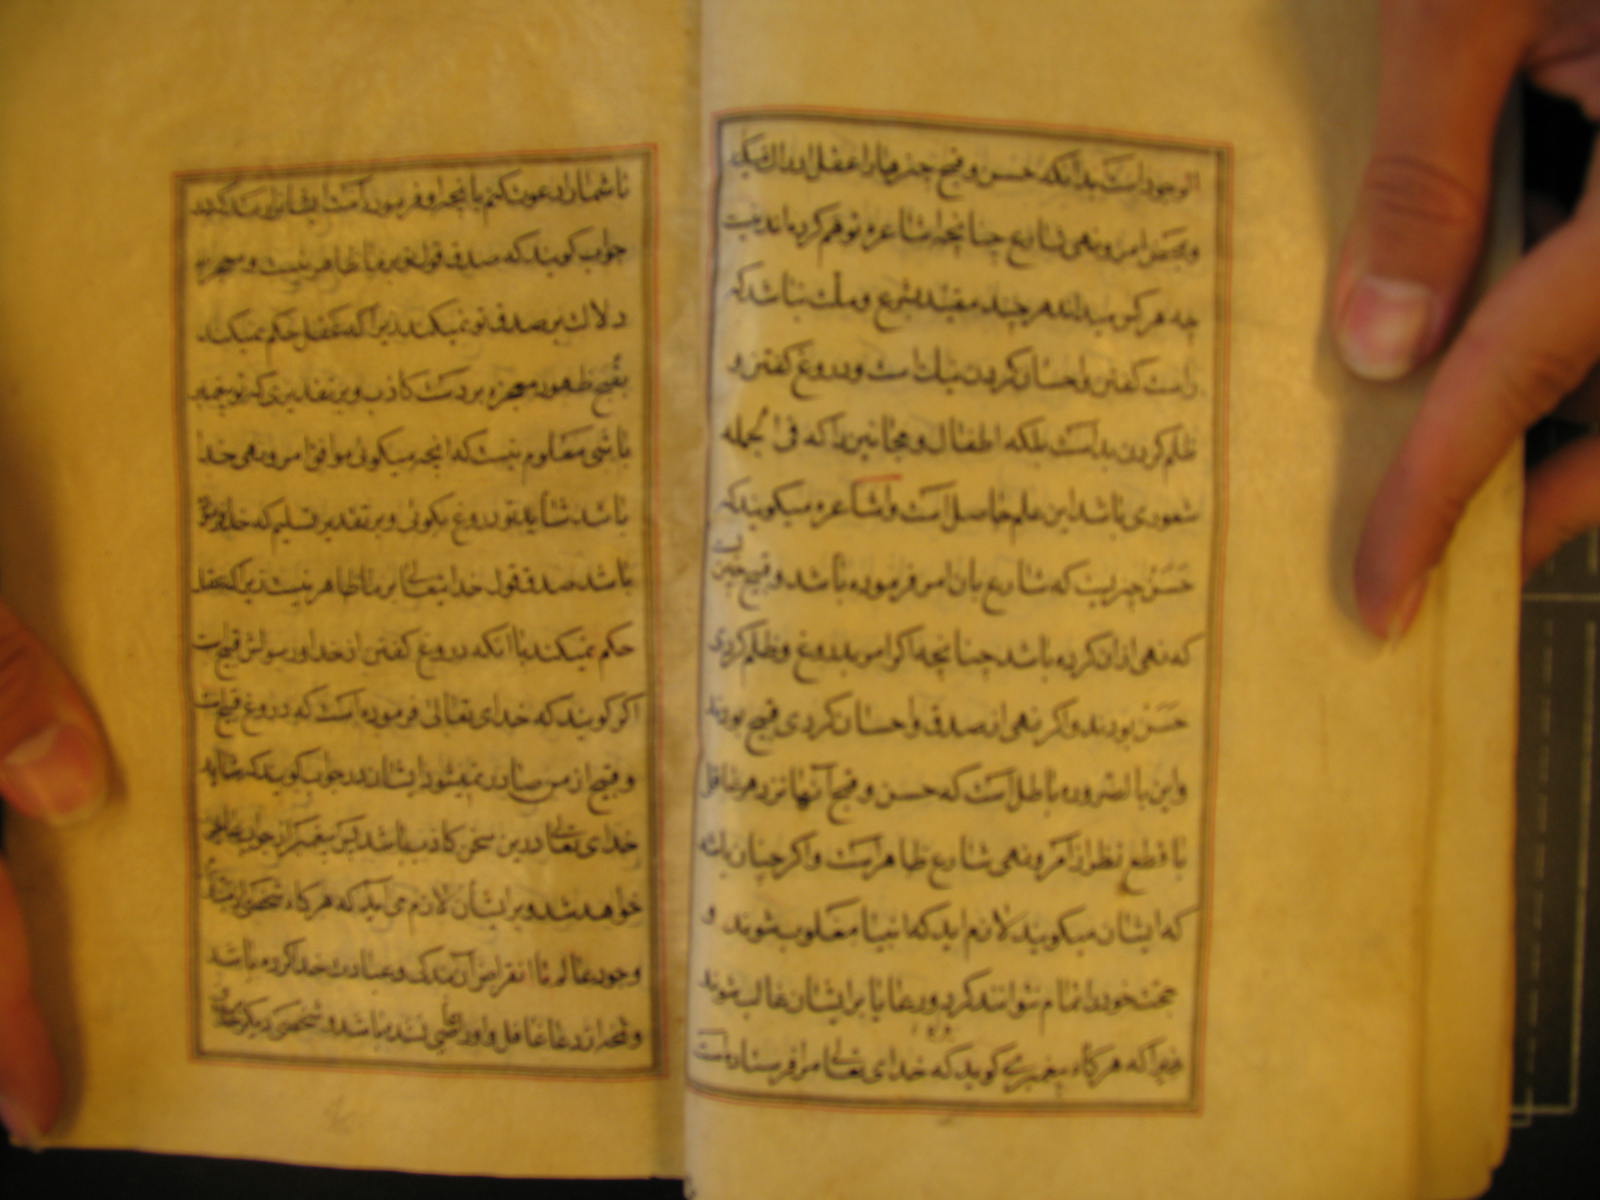 الوجود است بدانکه حسن و قبح چیزها را عقل ادراک میکند
و بمحض امر و نهی شارع چنانچه اشاعره توهم کرده اند نیست
چه هر کس میداند هر چند مقید بشرع و ملت نباشد که
راست کفتن و احسان کردن نیک است و دروغ کفتن و
ظلم کردن بد است بلکه اطفال و مجانین را که فی الجمله
شعوری باشد این علم حاصل است و اشاعره میکویند که
حسن چیزیست که شارع بان امر فرموده باشد و قبیح چیزیست
که نهی از ان کرده باشد چنانچه اکر امر بدروغ و ظلم کردی
حسن بودند و اکر نهی از صدق و احسان کردی قبیح بودند
و این بالضروره باطل است که حسن و قبح آنها نزد هر عاقل
با قطع نظر از امر و نهی شارع ظاهر است و اکر چنان باشد
که ایشان میکویند لازم اید که انبیا مغلوب شوند و
حجت خود را تمام نتوانند کرد و رعایا بر ایشان غالب شوند
زیرا که هرکاه پیغمبری کوید که خدای تعالی مرا فرستاده است
تا شما را دعوت کنم بانچه او فرموده است ایشان
جواب کویند که صدق قول تو بر ما ظاهر نیست و معجزه
دلالت بر صدق تو نمیکند زیرا که عقل حکم نمیکند
بقبح ظهور معجزه بر دست کاذب و بر تقدیری که تو پیغمبر
باشی معلوم نیست که انچه میکوئی موافق امر و نهی خدا
باشد شاید تو دروغ بکوئی و بر تقدیر تسلیم که خدا
باشد صدق قول خدایتعالی بر ما ظاهر نیست زیرا که عقل
حکم نمیکند باانکه دروغ کفتن از خدا و رسولش قبیحست
اکر کویند که خدای تعالی فرموده است که دروغ قبیحست
و قبیح از من صادر نمیشود ایشان در جواب کویند که شاید
خدای تعالی درین سخن کاذب باشد پس پیغمبر از جواب عاجز
خواهد شد و بر ایشان لازم می اید که هرکاه شخصی از ابتدا
وجود عالم تا انقراض آن بندکی و عبادت خدا کرده باشد
و لمحه از دعا غافل و او راضی نشده باشد و شخصی دیکر